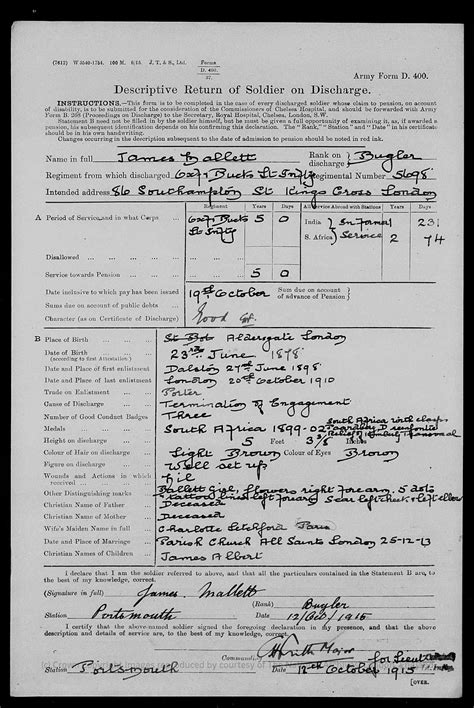 (7612) W 3540-1754. 100 M. 6/15. J. T. & S., Ltd. Forms D. 400. 37.
Army Form D. 400.
Descriptive Return of Soldier on Discharge.
INSTRUCTIONS.—This form is to be completed in the case of every discharged soldier whose claim to pension, on account
of disability, is to be submitted for the consideration of the Commissioners of Chelsea Hospital, and should be forwarded with Army
Form B. 268 (Proceedings on Discharge) to the Secretary, Royal Hospital, Chelsea, London, S.W.
Statement B need not be filled in by the soldier himself, but he must be given a full opportunity of examining it, as, if awarded a
pension, his subsequent identification depends on his confirming this declaration. The "Rank," "Station" and "Date" in his certificate
should be in his own handwriting.
Changes occurring in the description subsequent to the date of admission to pension should be noted in red ink.
Name in full James Mallett Rank on discharge } Bugler
Regiment from which discharged Oxf & Bucks Lt Infty Regimental Number 5698
Intended address 86 Southampton St Kings Cross London
Regiment Years Days All Service Abroad with Stations Years Days
A Period of Service, and in what Corps Oxf & Bucks 5 0 India } In former 231
Lt Infty S. Africa } Service 2 74
Disallowed
Service towards Pension 5 0
Date inclusive to which pay has been issued 19th October Sum due on account of advance of Pension }
Sums due on account of public debts
Character (as on Certificate of Discharge) Good
B Place of Birth St Bots Aldersgate London
Date of Birth 23rd June 1878
(according to first Attestation)
Date and Place of first enlistment Dalston 27th June 1898
Date and Place of last enlistment London 20th October 1910
Trade on Enlistment Porter
Cause of Discharge Termination of Engagement
Number of Good Conduct Badges Three
Medals South Africa 1899-02 South Africa with clasps Paardeberg Driefontein Relief of Kimberley Transvaal
Height on discharge 5 Feet Inches
Colour of Hair on discharge Light Brown Colour of Eyes Brown
Figure on discharge Well set up
Wounds and Actions in which received Nil
Other Distinguishing marks Ballett Girl, flowers right forearm, 5 dots
Tattoo left forearm Scar left cheek
Christian Name of Father Deceased
Christian Name of Mother Deceased
Wife's Maiden Name in full Charlotte
Date and Place of Marriage Parish Church All Saints London 25-12-13
Christian Names of Children James Albert
I declare that I am the soldier referred to above, and that all the particulars contained in the Statement B are, to
the best of my knowledge, correct.
(Signature in full) James Mallett
(Rank) Bugler
Station Portsmouth Date 12/Oct/1915
I certify that the above-named soldier signed the foregoing declaration in my presence, and that the above
description and details of service are, to the best of my knowledge, correct.
Command Major for Lieut
Station Portsmouth Date 12th October 1915
[OVER.